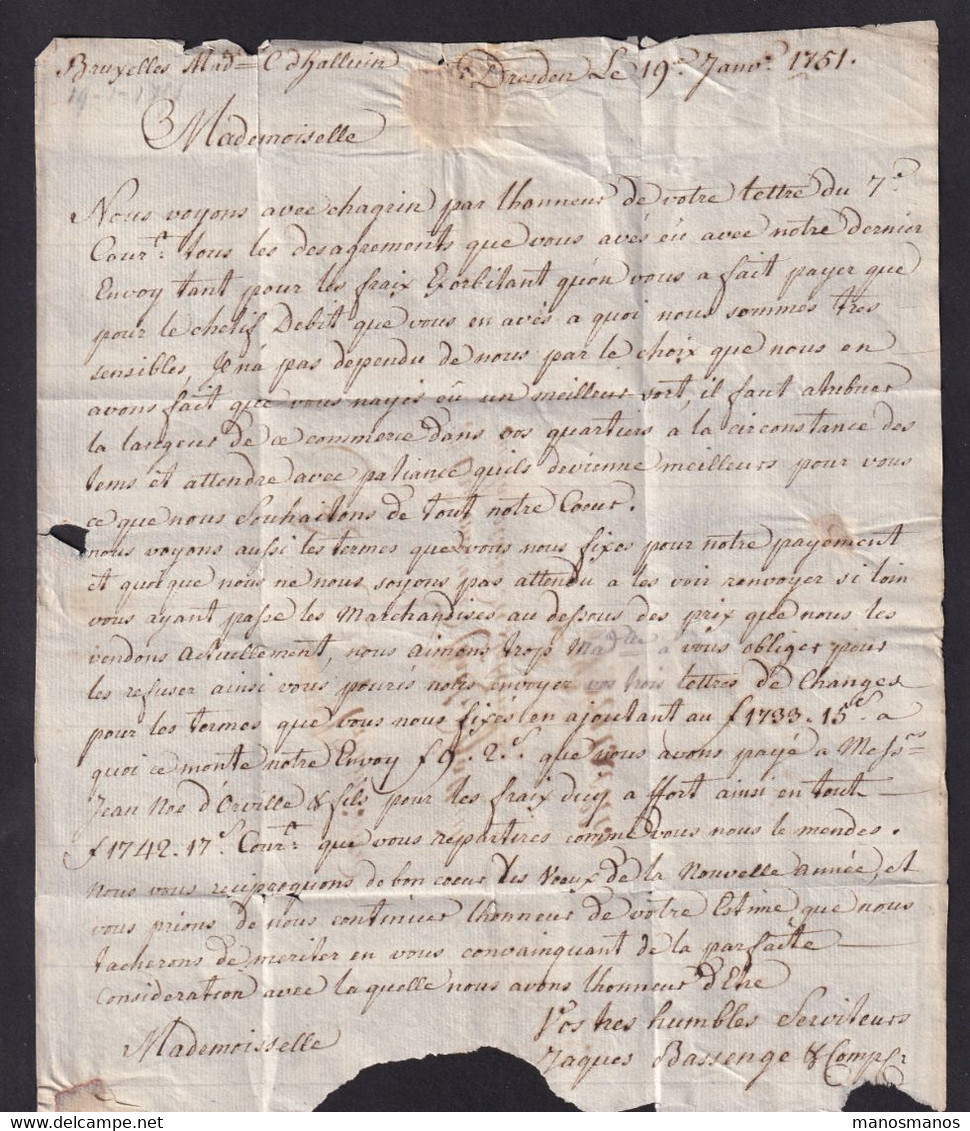 Bruxelles Mad.e C dhalluin Dresden Le 19.e Janv.r 1751.
19-1-1751
Mademoiselle
Nous voyons avec chagrin par lhonneur de votre lettre du 7.e
Cour.t tous les desagrements que vous avés éü avec notre dernier
Envoy tant pour les fraix Exorbitant qúon vous a fait payer que
pour le chetif Debit que vous en avés a quoi nous sommes tres
sensibles, Il ná pas dépendu de nous par le choix que nous en
avons fait que vous nayés eü un meilleur sort, il faut atribuer
la langeur de ce commerce dans vos quartiers a la circonstance des
tems et attendre avec patiance quils devienne meilleurs pour vous
ce que nous Souhaitons de tout notre Coeur.
nous voyons aussi les termes que vous nous fixes pour notre payement
et quoique nous ne nous soyons pas attendu a les voir renvoyer si loin
vous ayant passe les Marchandises au dessous des prix que nous les
vendons actuellement, nous aimons trop Mad.lle a vous obliger pour
les refuser ainsi vous pourés nous envoyer vos trois lettres de Changes
pour les termes que vous nous fixés en ajoutant au f 1733. 15.s a
quoi ce monte notre Envoy f 9. 2.s que nous avons payé a Mess.rs
Jean Noé d'Orville & fils pour les fraix dicy a ffort ainsi en tout
f 1742. 17.s Cour.t que vous repartires comme vous nous le mendes.
nous vous reciproquons de bon coeur les Voeux de la Nouvelle année, et
vous prions de nous continuer lhonneur de votre Estime que nous
tacherons de meriter en vous convainquant de la parfaite
Consideration avec laquelle nous avons lhonneur d'Etre
Vos tres humbles Serviteurs
Mademoisselle Jaques Bassenge & Comp.e
manosmanos